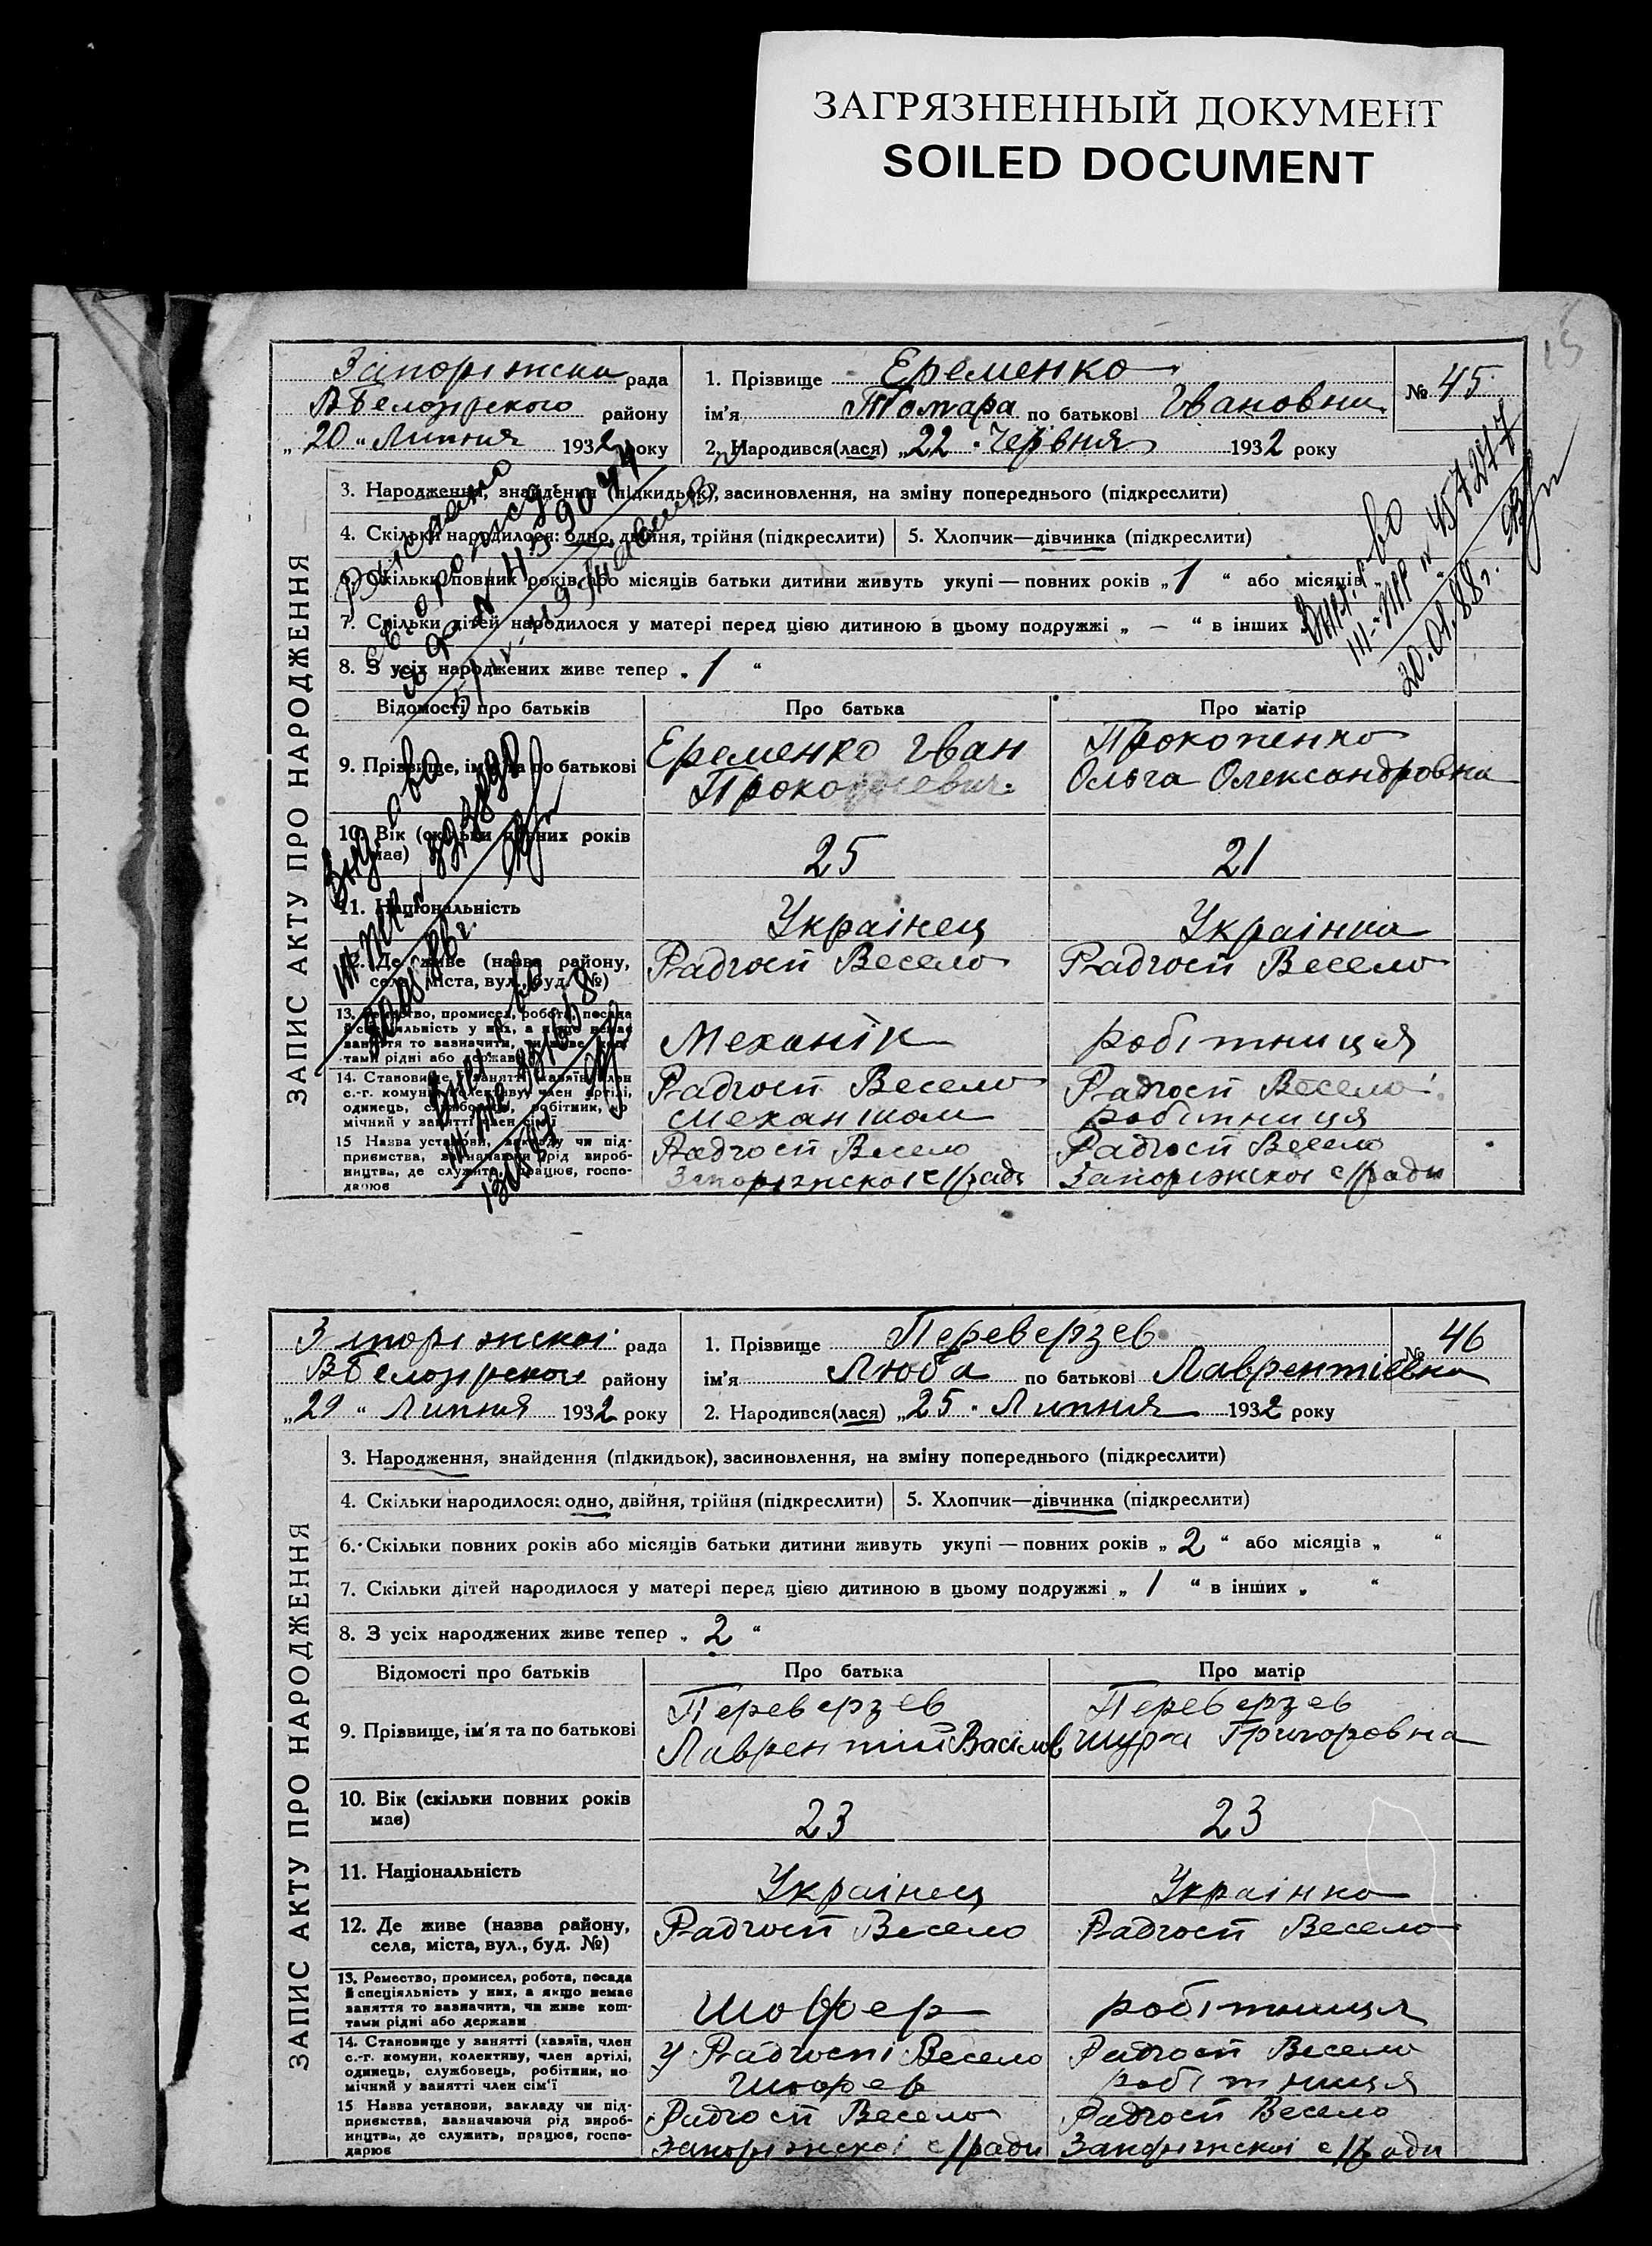 ЗАГРЯЗНЕННЫЙ ДОКУМЕНТ
SOILED DOCUMENT
15
Запоріжска рада
ВБелозірского району
„20“ Липня 1932 року
1. Прізвище Еременко
ім'я Томара по батькові Івановна
2. Народився(лася) „22“ Червня 1932 року
№ 45
ЗАПИС АКТУ ПРО НАРОДЖЕННЯ
3. Народження, знайдення (підкидьок), засиновлення, на зміну попереднього (підкреслити)
4. Скільки народилося: одно, двійня, трійня (підкреслити) 5. Хлопчик—дівчинка (підкреслити)
6. Скільки повних років або місяців батьки дитини живуть укупі — повних років „1“ або місяців
7. Скільки дітей народилося у матері перед цією дитиною в цьому подружжі „—“ в інших
8. З усіх народжених живе тепер „1“
20.01.88г.
Відомості про батьків Про батька Про матір
9. Прізвище, ім'я та по батькові
Еременко Іван
Прокопиевич
Прокопенко
Ольга Олександровна
10. Вік (скільки повних років має) 25 21
11. Національність Українец Українка
12. Де живе (назва району, села, міста, вул., буд. №) Радгосп Весело Радгосп Весело
13. Ремество, промисел, робота, посада й спеціяльність у них, а якщо немає заняття то зазначити, чи живе коштами рідні або держави Механік робітниця
14. Становище у занятті (хазяїн, член с.-г. комуни, колективу, член артілі, одинець, службовець, робітник, помічний у занятті член сім'ї
Радгосп Весело
механиком
Радгосп Весело
робітниця
15 Назва установи, закладу чи підприємства, зазначаючи рід виробництва, де служить, працює, господарює
Радгосп Весело
Запоріжскоі с/ради
Радгосп Весело
Запоріжскоі с/ради
Запоріжскоі рада
ВБелозірского району
„29“ Липня 1932 року
1. Прізвище Переверзев
ім'я Люба по батькові Лаврентіевна
2. Народився(лася) „25“ Липня 1932 року
№ 46
ЗАПИС АКТУ ПРО НАРОДЖЕННЯ
3. Народження, знайдення (підкидьок), засиновлення, на зміну попереднього (підкреслити)
4. Скільки народилося: одно, двійня, трійня (підкреслити) 5. Хлопчик—дівчинка (підкреслити)
6. Скільки повних років або місяців батьки дитини живуть укупі — повних років „2“ або місяців „ “
7. Скільки дітей народилося у матері перед цією дитиною в цьому подружжі „1“ в інших „ “
8. З усіх народжених живе тепер „2“
Відомості про батьків Про батька Про матір
9. Прізвище, ім'я та по батькові
Переверзев
Лаврентій Васілов
Переверзев
Шура Григоровна
10. Вік (скільки повних років має) 23 23
11. Національність Українец Українка
12. Де живе (назва району, села, міста, вул., буд. №) Радгосп Весело Радгосп Весело
13. Ремество, промисел, робота, посада й спеціяльність у них, а якщо немає заняття то зазначити, чи живе коштами рідні або держави Шофер робітниця
14. Становище у занятті (хазяїн, член с.-г. комуни, колективу, член артілі, одинець, службовець, робітник, помічний у занятті член сім'ї
у Радгоспі Весело
Шофер
Радгосп Весело
робітниця
15 Назва установи, закладу чи підприємства, зазначаючи рід виробництва, де служить, працює, господарює
Радгосп Весело
Запоріжскоі с/ради
Радгосп Весело
Запоріжскоі с/ради